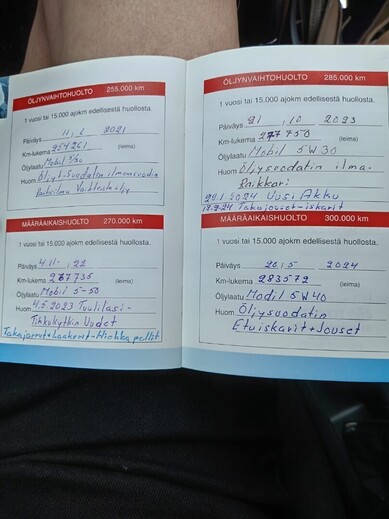 ÖLJYNVAIHTOHUOLTO 255.000 km
1 vuosi tai 15.000 ajokm edellisestä huollosta.
Päiväys 11, 2021
Km-lukema 254261 (leima)
Öljylaatu Mobil 5/50
Huom Öljyt-Suodatin ilmansuodin
MÄÄRÄAIKAISHUOLTO 270.000 km
1 vuosi tai 15.000 ajokm edellisestä huollosta.
Päiväys 4.11.22
Km-lukema 267735 (leima)
Öljylaatu Mobil 5-50
Huom 4.5.2023 Tuulilasi-
Uudet
Takajarrut+Laakerit-
ÖLJYNVAIHTOHUOLTO 285.000 km
1 vuosi tai 15.000 ajokm edellisestä huollosta.
Päiväys 21, 10 2023
Km-lukema 277750 (leima)
Öljylaatu Mobil 5W30
Huom Öljysuodatin ilma-
Raikkari
29.1.2024 Uusi Akku
Takajouset-iskarit
MÄÄRÄAIKAISHUOLTO 300.000 km
1 vuosi tai 15.000 ajokm edellisestä huollosta.
Päiväys 20,5 2024
Km-lukema 283572 (leima)
Öljylaatu Modil 5W40
Huom Öljysuodatin
Etuiskarit+Jouset